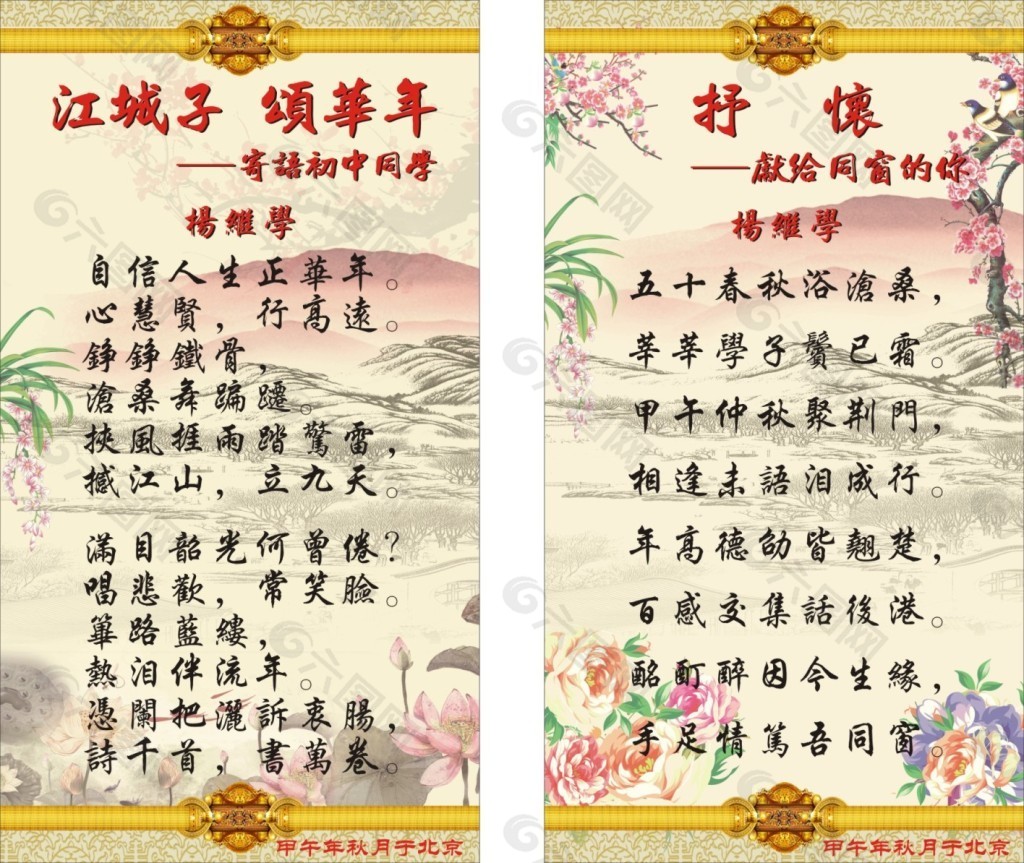 江城子 頌華年
——寄語初中同學
楊維學
自信人生正華年。
心慧賢，行高遠。
錚錚鐵骨，
滄桑舞蹁躚。
挾風捱雨踏驚雷，
撼江山，立九天。
滿目韶光何曾倦？
唱悲歡，常笑臉。
篳路藍縷，
熱泪伴流年。
憑闌把灑訴衷腸，
詩千首，書萬卷。
甲午年秋月于北京
抒 懷
——獻給同窗的你
楊維學
五十春秋浴滄桑，
莘莘學子鬢已霜。
甲午仲秋聚荆門，
相逢未語泪成行。
年高德劭皆翹楚，
百感交集話後港。
酩酊醉因今生緣，
手足情篤吾同窗。
甲午年秋月于北京
六图网